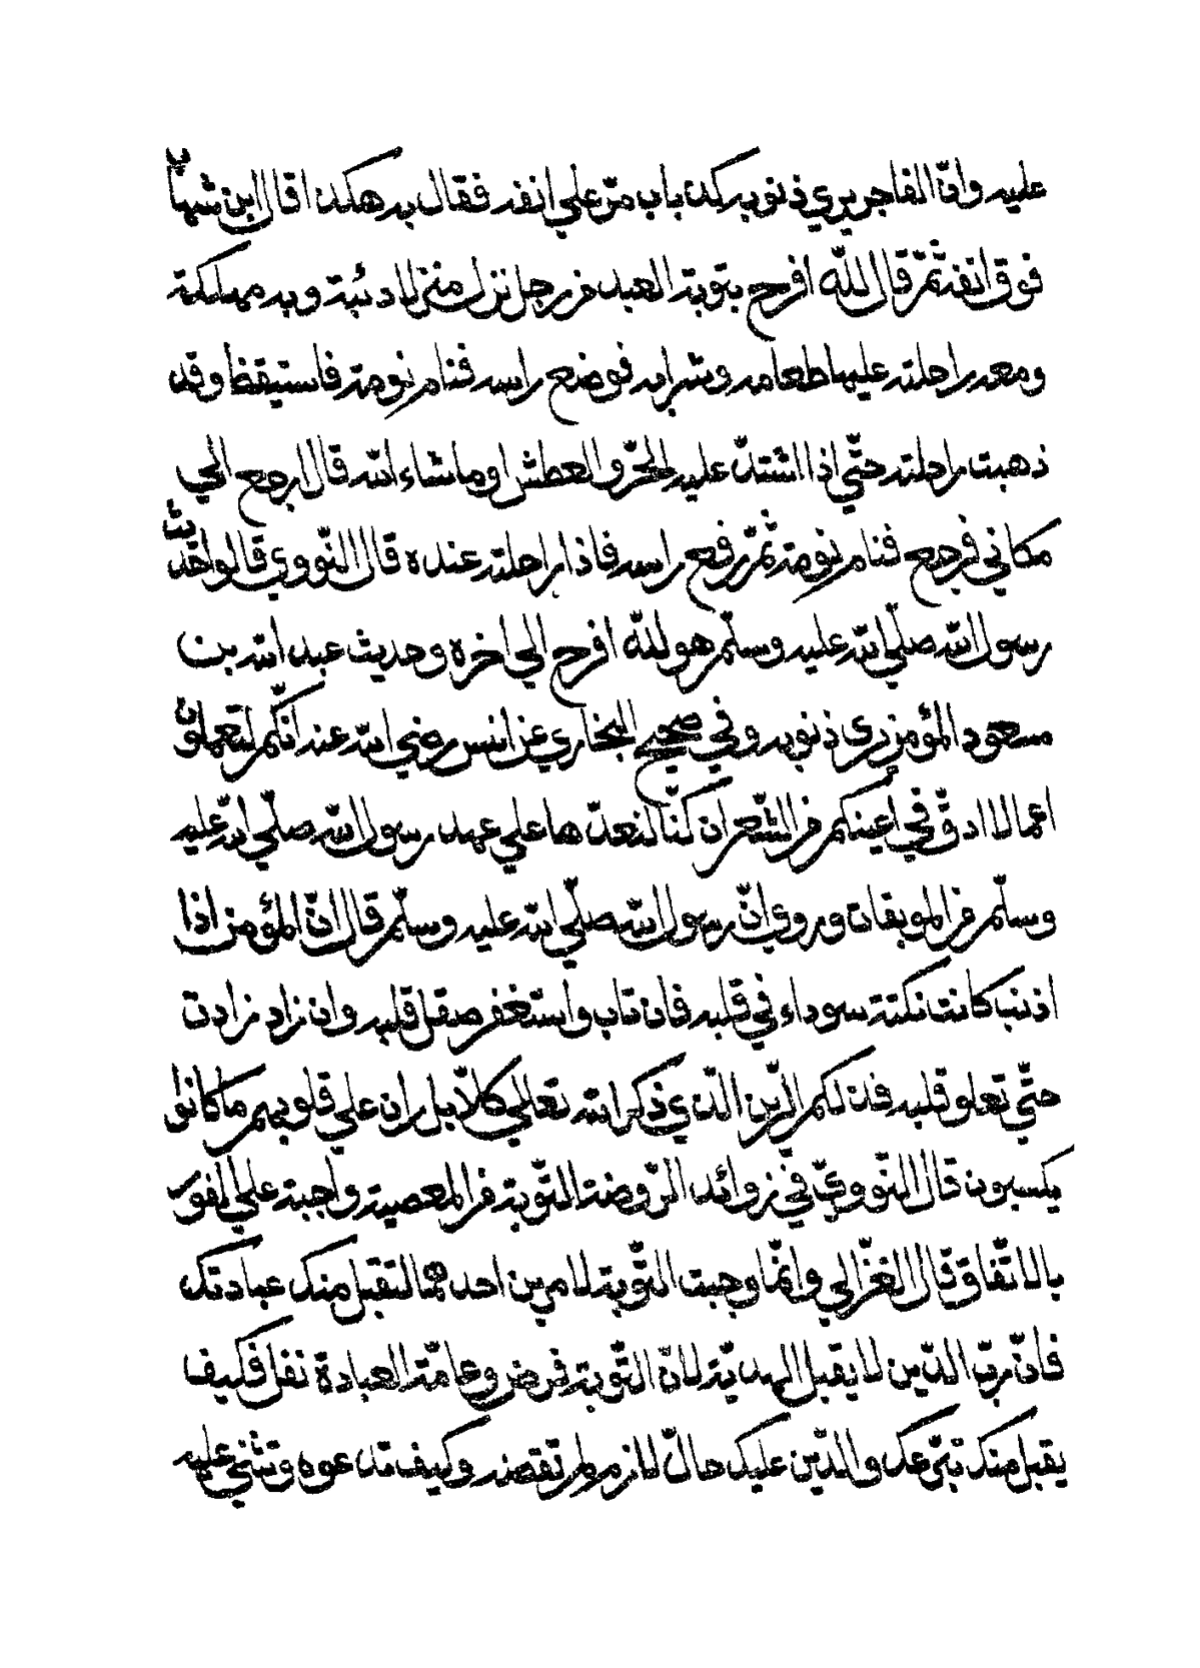 عليه وانّ الفاجر يري ذنوبه كذباب مرّ علي انفه فقال به هكذا قال ابن شهاب
فوق انفه ثمّ قال للّه افرح بتوبة العبد من رجل نزل منزلا دئبة وبه مهلكة
ومعه راحلته عليها طعامه وشرابه فوضع راسه فنام نومة فاستيقظ وقد
ذهبت راحلته حتّي اذا اشتدّ عليه الحرّ والعطش او ما شاء الله قال ارجع الي
مكاني فرجع فنام نومة ثمّ رفع راسه فاذا راحلته عنده قال النّووي قالوا حديث
رسول الله صلّي الله عليه وسلّم هو للّه افرح الي اخره وحديث عبد الله بن
مسعود المؤمن يري ذنوبه وفي صحيح البخاري عن انس رضي الله عنه انّكم لتعملون
اعمالا ادقّ في اعينكم من الشّعر ان كنّا لنعدّها علي عهد رسول الله صلّي الله عليه
وسلّم من الموبقات وروي انّ رسول الله صلّي الله عليه وسلّم قال انّ المؤمن اذا
اذنب كانت نكتة سوداء في قلبه فان تاب واستغفر صقل قلبه وان زاد زادت
حتّي تعلو قلبه فذلكم الرّين الّذي ذكر الله تعالي كلاّ بل ران علي قلوبهم ما كانوا
يكسبون قال النّوويّ في زوائد الرّوضة التّوبة من المعصية واجبة علي الفور
بالاتّفاق قال الغزّالي وانّما وجبت التّوبة لامرين احدهما لتقبل منك عبادتك
فانّ ربّ الدّين لا يقبل الهديّة لانّ التّوبة فرض وعامّة العبادة نفل فكيف
يقبل منك تبرّعك والدّين عليك حالّ لازم ولم تقضه وكيف تدعوه وتثني عليه